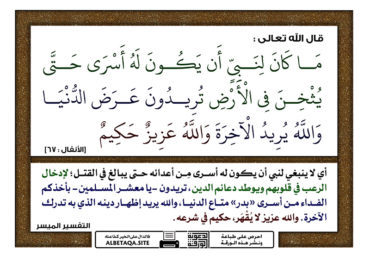 قال الله تعالى :
مَا كَانَ لِنَبِيٍّ أَن يَكُونَ لَهُ أَسْرَى حَتَّى
يُثْخِنَ فِي الْأَرْضِ تُرِيدُونَ عَرَضَ الدُّنْيَا
وَاللَّهُ يُرِيدُ الْآخِرَةَ وَاللَّهُ عَزِيزٌ حَكِيمٌ
[الأنفال : ٦٧]
أي لا ينبغي لنبي أن يكون له أسرى من أعدائه حتى يبالغ في القتل؛ لإدخال
الرعب في قلوبهم ويوطد دعائم الدين، تريدون -يا معشر المسلمين- بأخذكم
الفداء من أسرى «بدر» متاع الدنيا، والله يريد إظهار دينه الذي به تدرك
الآخرة. والله عزيز لا يُقْهَر، حكيم في شرعه.
التفسير الميسر
احرص على طباعة
ونشر هذه الورقة
فالدال على الخير كفاعله
ALBETAQA.SITE